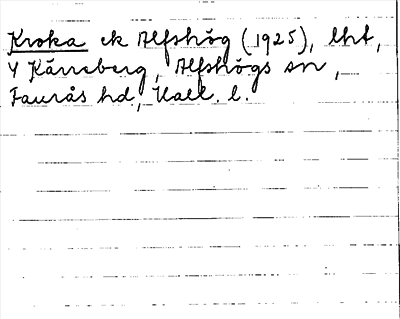 Kroka ek Alfshög (1925), lht,
Y Kärreberg, Alfshögs sn,
Faurås hd, Hall. l.